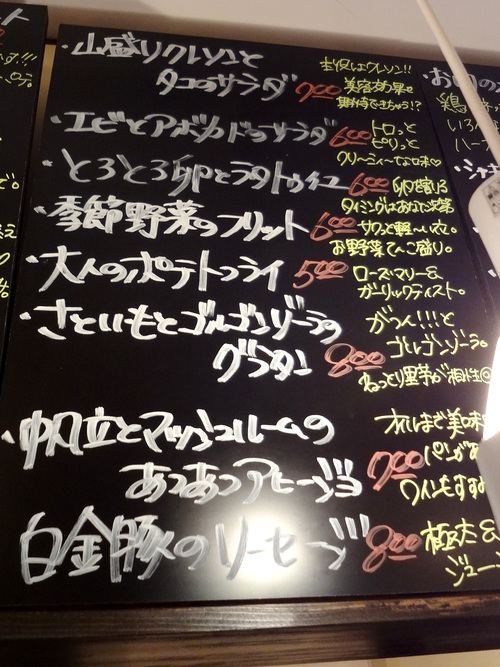 ・山盛りクレソンと
タコのサラダ 700
主役はクレソン!!
美容効果も
期待できちゃう!?
・エビとアボカドのサラダ 600
トロっと
ピリっと
クリーミィーな口味♡
・とろとろ卵とラタトゥイユ 600
卵を割る
タイミングはあなた次第
・季節野菜のフリット 600
サクッと軽い衣。
お野菜てんこ盛り。
・大人のポテトフライ 500
ローズマリー&
ガーリックテイスト。
・さといもとゴルゴンゾーラの
グラタン 800
がつん!!!と
ゴルゴンゾーラ。
ねっとり里芋が相性◎
・帆立とマッシュルームの
あつあつアヒージョ 700
オイルまで美味
パンがあ
ワインもすすみ
白金豚のソーセージ 800
極太&
ジューシ